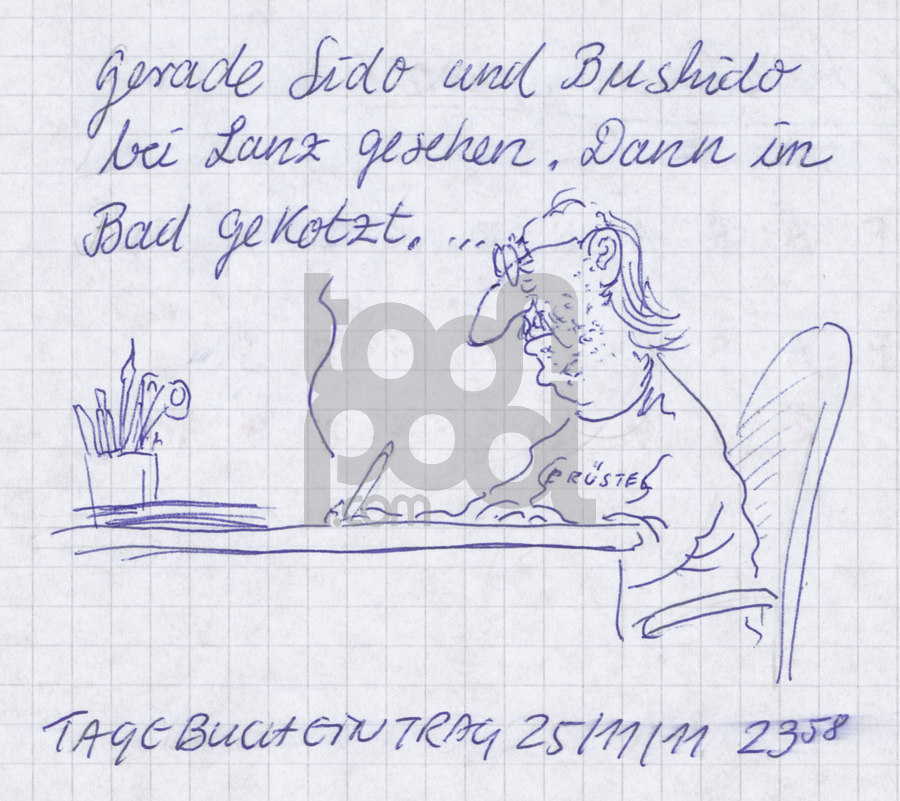 Gerade Sido und Bushido
bei Lanz gesehen. Dann im
Bad gekotzt. ...
toonpool
.com
BRÜSTE
TAGEBUCHEINTRAG 25/11/11 23⁵⁸